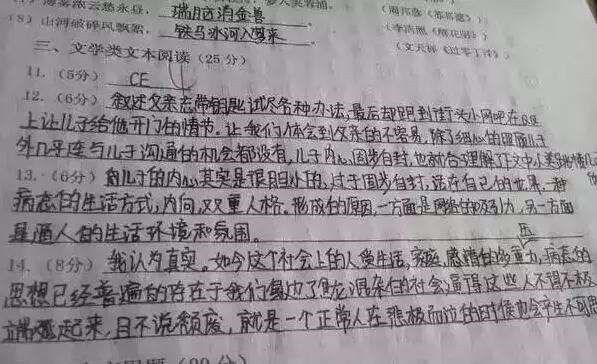 (7) 薄雾浓云愁永昼，瑞脑消金兽。
(8) 山河破碎风飘絮，铁马冰河入梦来。(文天祥《过零丁洋》)
三、文学类文本阅读（25分）
11. （5分） CE
12. （6分）叙述父亲忘带钥匙试尽各种办法，最后却跑到街头小网吧在QQ
上让儿子给他开门的情节。让我们体会到父亲的不容易，除了细心的照顾儿子
外几乎连与儿子沟通的机会都没有，儿子内心固步自封，也就合理解了文中小
13. （6分）儿子的内心其实是很胆小的，过于固步自封，活在自己的世界，一种
病态的生活方式，内向，双重人格。形成的原因，一方面是网络的吸引力，另一方面
是通人的生活环境和氛围。
14. （8分）我认为真实。如今这个社会上的人受生活，家庭，感情的多重力，病态的
思想已经普遍的存在于我们身边了，混杂的社会逼得这些人不得不极
端起来，且不说颓废，就是一个正常人在悲极而泣的时候也会